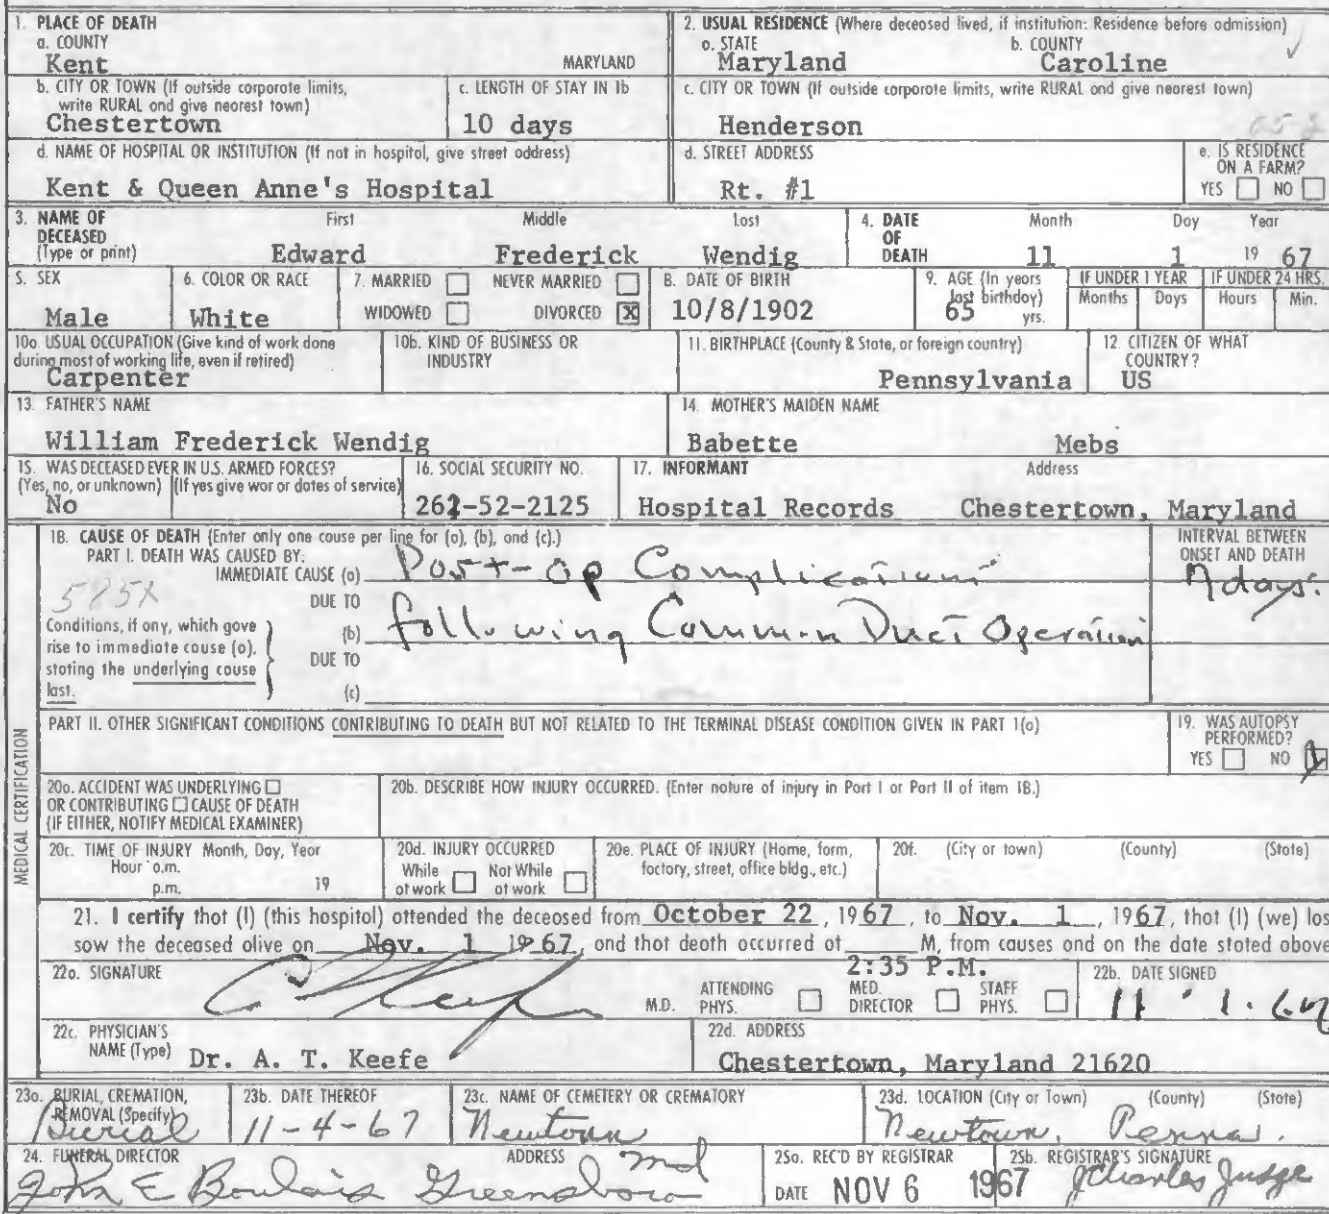 1. PLACE OF DEATH
a. COUNTY
Kent MARYLAND
2. USUAL RESIDENCE (Where deceased lived, if institution: Residence before admission)
a. STATE b. COUNTY
Maryland Caroline
b. CITY OR TOWN (If outside corporate limits, write RURAL and give nearest town)
Chestertown
c. LENGTH OF STAY IN 1b
10 days
c. CITY OR TOWN (If outside corporate limits, write RURAL and give nearest town)
Henderson
d. NAME OF HOSPITAL OR INSTITUTION (If not in hospital, give street address)
Kent & Queen Anne's Hospital
d. STREET ADDRESS
Rt. #1
e. IS RESIDENCE ON A FARM?
YES NO
3. NAME OF DECEASED (Type or print)
First Middle Last
Edward Frederick Wendig
4. DATE OF DEATH
Month Day Year
11 1 19 67
5. SEX
Male
6. COLOR OR RACE
White
7. MARRIED NEVER MARRIED
WIDOWED DIVORCED X
8. DATE OF BIRTH
10/8/1902
9. AGE (In years last birthday)
65 yrs.
IF UNDER 1 YEAR
Months Days
IF UNDER 24 HRS.
Hours Min.
10a. USUAL OCCUPATION (Give kind of work done during most of working life, even if retired)
Carpenter
10b. KIND OF BUSINESS OR INDUSTRY
11. BIRTHPLACE (County & State, or foreign country)
Pennsylvania
12. CITIZEN OF WHAT COUNTRY?
US
13. FATHER'S NAME
William Frederick Wendig
14. MOTHER'S MAIDEN NAME
Babette Mebs
15. WAS DECEASED EVER IN U.S. ARMED FORCES?
(Yes, no, or unknown) (If yes give war or dates of service)
No
16. SOCIAL SECURITY NO.
262-52-2125
17. INFORMANT Address
Hospital Records Chestertown, Maryland
MEDICAL CERTIFICATION
18. CAUSE OF DEATH (Enter only one cause per line for (a), (b), and (c).)
PART I. DEATH WAS CAUSED BY:
IMMEDIATE CAUSE (a) Post-op Complications
INTERVAL BETWEEN ONSET AND DEATH
7 days.
585X
DUE TO
(b) following Common Duct Operation
Conditions, if any, which gave rise to immediate cause (a), stating the underlying cause last.
DUE TO
(c)
PART II. OTHER SIGNIFICANT CONDITIONS CONTRIBUTING TO DEATH BUT NOT RELATED TO THE TERMINAL DISEASE CONDITION GIVEN IN PART 1(a)
19. WAS AUTOPSY PERFORMED?
YES NO
20a. ACCIDENT WAS UNDERLYING
OR CONTRIBUTING CAUSE OF DEATH
(IF EITHER, NOTIFY MEDICAL EXAMINER)
20b. DESCRIBE HOW INJURY OCCURRED. (Enter nature of injury in Part I or Part II of item 18.)
20c. TIME OF INJURY Month, Day, Year
Hour a.m.
p.m. 19
20d. INJURY OCCURRED
While at work Not While at work
20e. PLACE OF INJURY (Home, farm, factory, street, office bldg., etc.)
20f. (City or town) (County) (State)
21. I certify that (I) (this hospital) attended the deceased from October 22, 1967, to Nov. 1, 1967, that (I) (we) las
saw the deceased alive on Nov. 1 1967, and that death occurred at M, from causes and on the date stated above
2:35 P.M.
22a. SIGNATURE
M.D. ATTENDING PHYS. MED. DIRECTOR STAFF PHYS.
22b. DATE SIGNED
11 . 1 . 67
22c. PHYSICIAN'S NAME (Type)
Dr. A. T. Keefe
22d. ADDRESS
Chestertown, Maryland 21620
23a. BURIAL, CREMATION, REMOVAL (Specify)
Burial
23b. DATE THEREOF
11-4-67
23c. NAME OF CEMETERY OR CREMATORY
Newtown
23d. LOCATION (City or Town) (County) (State)
Newtown, Penna.
24. FUNERAL DIRECTOR ADDRESS
John E Boulais Greensboro Md
25a. REC'D BY REGISTRAR
DATE NOV 6 1967
25b. REGISTRAR'S SIGNATURE
J Charles Judge